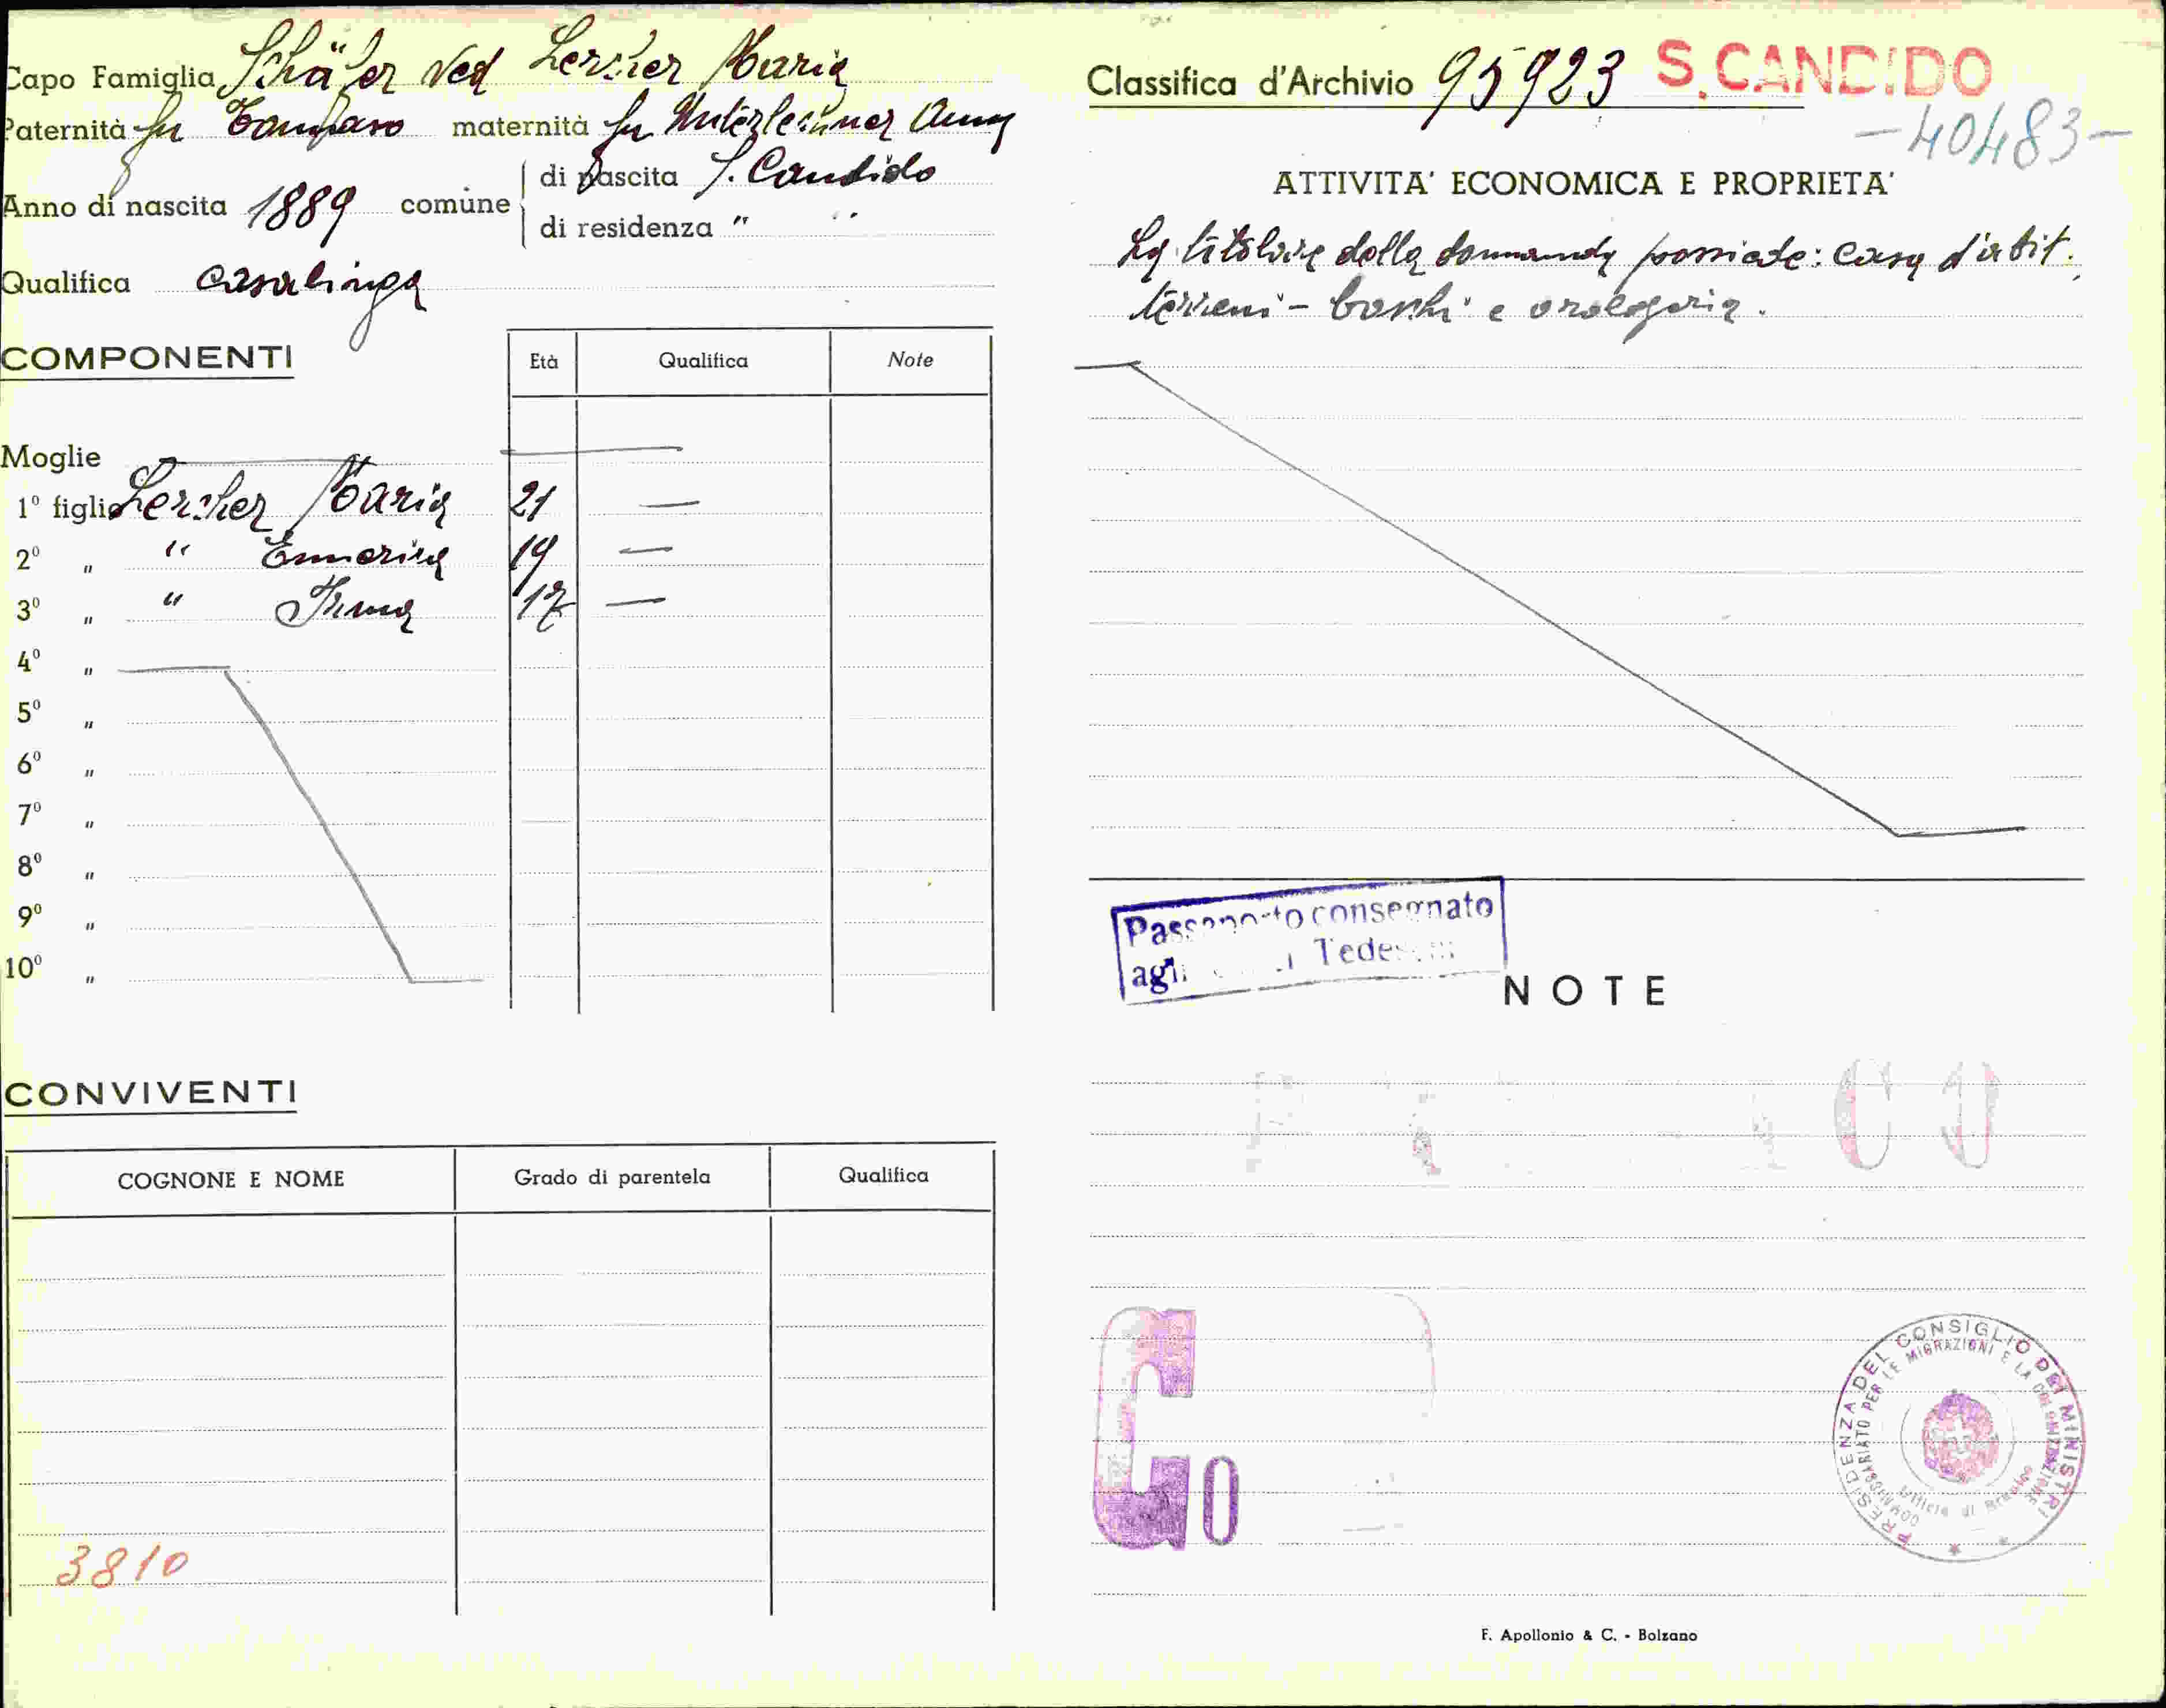 Capo Famiglia Schäfer Ved Lercher Maria
Paternità fu Tommaso maternità fu Unterlechner Anna
Anno di nascita 1889 comune di nascita S. Candido
di residenza " "
Qualifica casalinga
COMPONENTI
Età Qualifica Note
Moglie
1º figlio Lercher Maria 21
2º " " Emmerica 19
3º " " Irma 17
4º "
5º "
6º "
7º "
8º "
9º "
10º "
CONVIVENTI
COGNONE E NOME Grado di parentela Qualifica
3810
Classifica d'Archivio 95923 S. CANDIDO
-40483-
ATTIVITA' ECONOMICA E PROPRIETA'
La titolare della domanda possiede: casa d'abit.
terreni - boschi e orologeria.
Passaporto consegnato
agli Tedeschi
NOTE
CO
G0
PRESIDENZA DEL CONSIGLIO DEI MINISTRI
COMMISSARIATO PER LE MIGRAZIONI E LA COLONIZZAZIONE
Ufficio di Brunico
F. Apollonio & C. - Bolzano